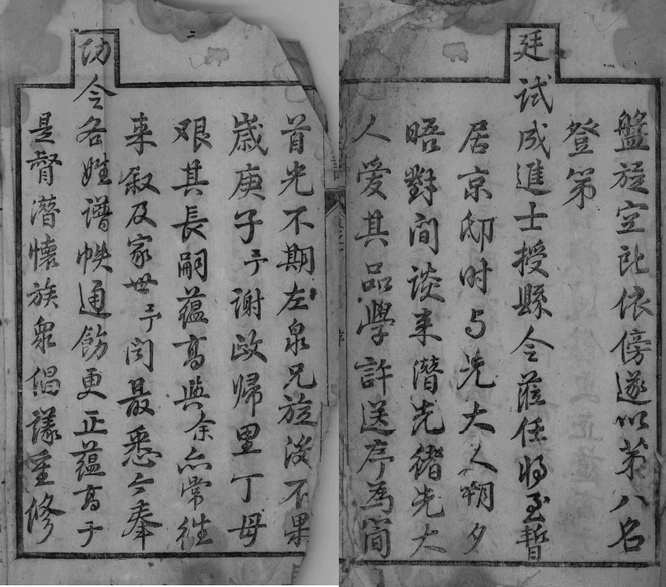 盤旋空訛依傍遂以第八名
登第
廷試成進士授縣令蒞任將至暫
居京邸时与先大人朝夕
晤對間談来潛先緒先大
人爱其品學許送序為簡
首光不期左泉兄旋沒不果
歲庚子予谢政帰里丁母
艰其長嗣蕴高與余亦常往
来叙及家世予闻最悉今奉
功令各姓谱帙通飭更正蕴高于
是督潛懷族衆倡議重修